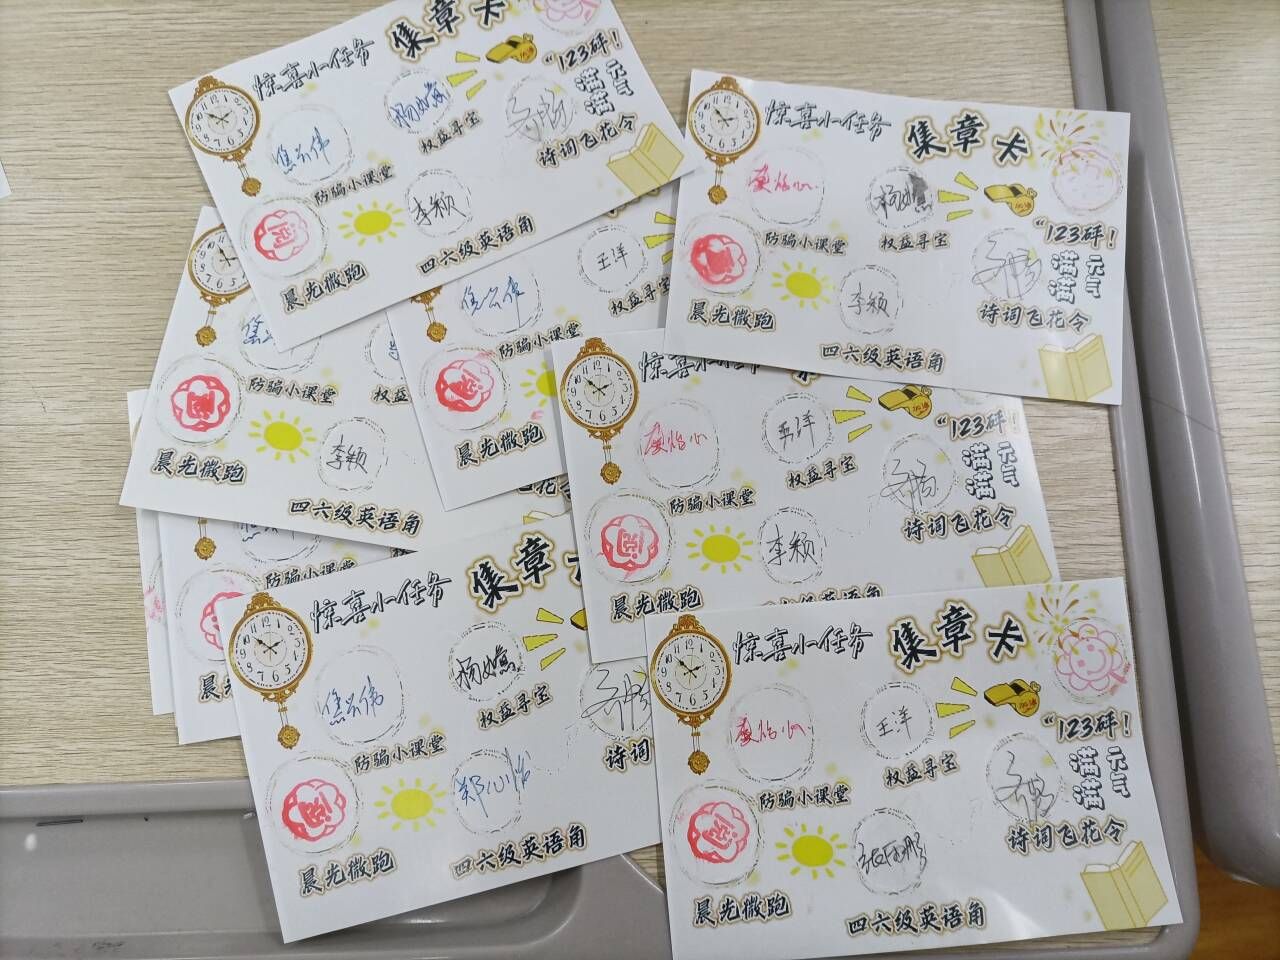 惊喜小任务 集章卡
焦云伟
杨如意
"123砰！
防骗小课堂
权益寻宝
诗词飞花令
满满元气
李颖
晨光微跑
四六级英语角
惊喜小任务 集章卡
杨如意
加油
"123砰！
防骗小课堂
权益寻宝
诗词飞花令
满满元气
李颖
晨光微跑
四六级英语角
防骗小课堂
权益寻宝
李颖
晨光微跑
四六级英语角
王洋
防骗小课堂
晨光微跑
惊喜小任务
王洋
加油
"123砰！
防骗小课堂
权益寻宝
诗词飞花令
满满元气
李颖
晨光微跑
四六级英语角
防骗小课堂
惊喜小任务 集章
焦云伟
杨如意
防骗小课堂
权益寻宝
诗词
郑心怡
晨光微跑
四六级英语角
惊喜小任务 集章卡
王洋
加油
"123砰！
防骗小课堂
权益寻宝
诗词飞花令
满满元气
晨光微跑
四六级英语角